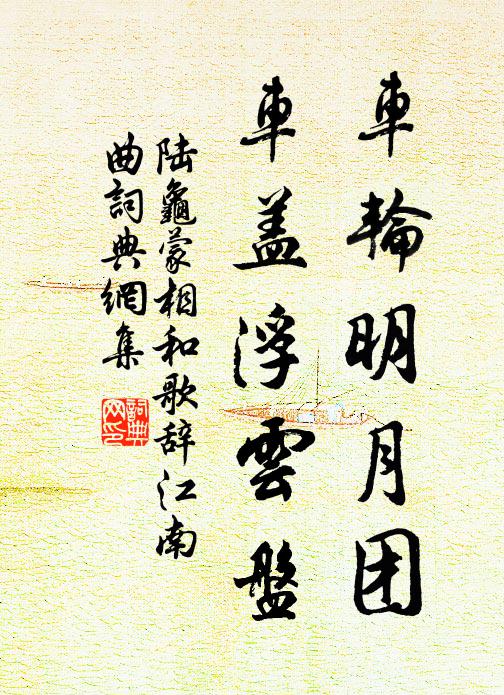 車輪明月团
車盖浮雲盤
陆龜蒙相和歌辞江南
曲詞典網集
詞典
网印